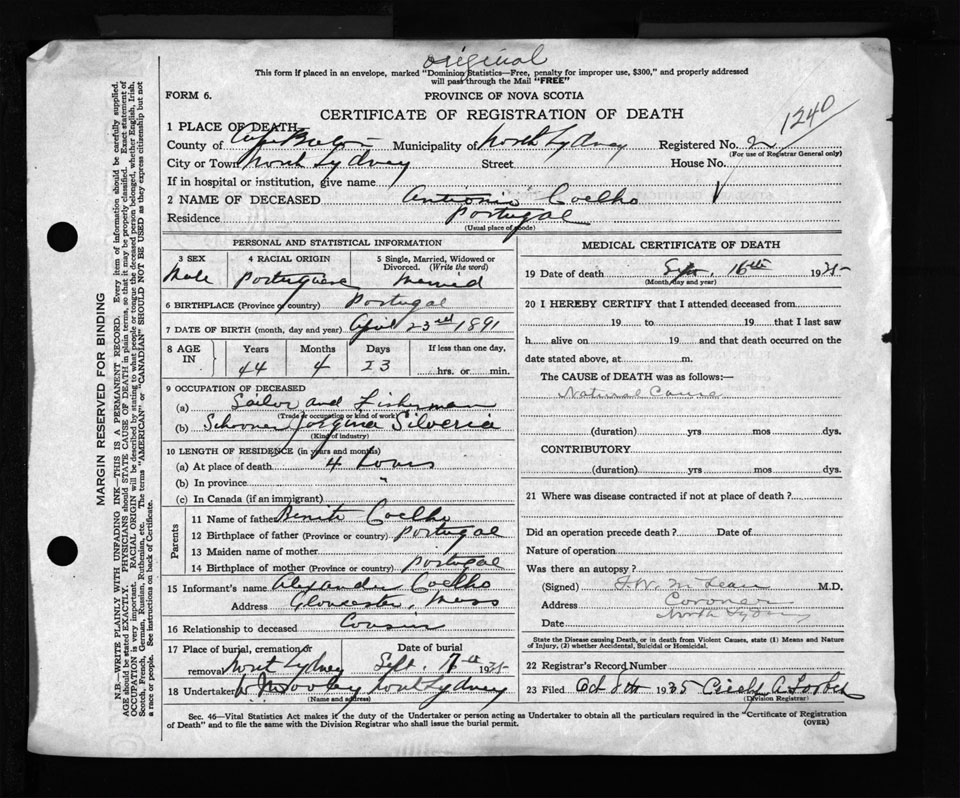 original
This form if placed in an envelope, marked "Dominion Statistics—Free, penalty for improper use, $300," and properly addressed
will pass through the Mail "FREE"
FORM 6.
PROVINCE OF NOVA SCOTIA
1240
CERTIFICATE OF REGISTRATION OF DEATH
1 PLACE OF DEATH—
County of Cape Breton Municipality of North Sydney Registered No.
(For use of Registrar General only)
City or Town North Sydney Street House No.
If in hospital or institution, give name
2 NAME OF DECEASED Coelho
Residence Portugal
(Usual place of abode)
PERSONAL AND STATISTICAL INFORMATION
3 SEX 4 RACIAL ORIGIN 5 Single, Married, Widowed or Divorced. (Write the word)
Male Portuguese
6 BIRTHPLACE (Province or country) Portugal
7 DATE OF BIRTH (month, day and year) April 23rd 1891
8 AGE IN Years Months Days If less than one day,
44 4 23 hrs. or min.
9 OCCUPATION OF DECEASED
(a) Sailor and Fisherman
(Trade or occupation or kind of work)
(b) Schooner Silveria
(Kind of industry)
10 LENGTH OF RESIDENCE (in years and months)
(a) At place of death 4
(b) In province "
(c) In Canada (if an immigrant)
Parents
11 Name of father Coelho
12 Birthplace of father (Province or country) Portugal
13 Maiden name of mother
14 Birthplace of mother (Province or country) Portugal
15 Informant's name Alexander Coelho
Address Gloucester, Mass
16 Relationship to deceased Cousin
17 Place of burial, cremation or
removal North Sydney Sept. 1935
18 Undertaker North Sydney
(Name and address)
MEDICAL CERTIFICATE OF DEATH
19 Date of death Sept. 16th 1935
(Month, day and year)
20 I HEREBY CERTIFY that I attended deceased from
19 to 19 that I last saw
h alive on 19 and that death occurred on the
date stated above, at m.
The CAUSE of DEATH was as follows:—
Natural Cause
(duration) yrs mos dys.
CONTRIBUTORY
(duration) yrs mos dys.
21 Where was disease contracted if not at place of death?
Did an operation precede death? Date of
Nature of operation
Was there an autopsy?
(Signed) McLean M.D,
Address Coroner
Date North Sydney
State the Disease causing Death, or in death from Violent Causes, state (1) Means and Nature
of Injury, (2) whether Accidental, Suicidal or Homicidal.
22 Registrar's Record Number
23 Filed Oct 1935 A. Forbes
(Division Registrar)
Sec. 46—Vital Statistics Act makes it the duty of the Undertaker or person acting as Undertaker to obtain all the particulars required in the "Certificate of Registration
of Death" and to file the same with the Division Registrar who shall issue the burial permit. (OVER)
MARGIN RESERVED FOR BINDING
N.B.—WRITE PLAINLY WITH UNFADING INK—THIS IS A PERMANENT RECORD. Every item of information should be carefully supplied.
AGE should be stated EXACTLY. PHYSICIANS should state CAUSE OF DEATH in plain terms, so that it may be properly classified. Exact statement of
OCCUPATION is very important. RACIAL ORIGIN will be described by stating to what people or tongue the deceased person belonged, whether English, Irish,
Scotch, French, German, Russian, Ruthenian, etc. The terms "AMERICAN" or "CANADIAN" SHOULD NOT BE USED as they express citizenship but not
a race or people. See instructions on back of Certificate.